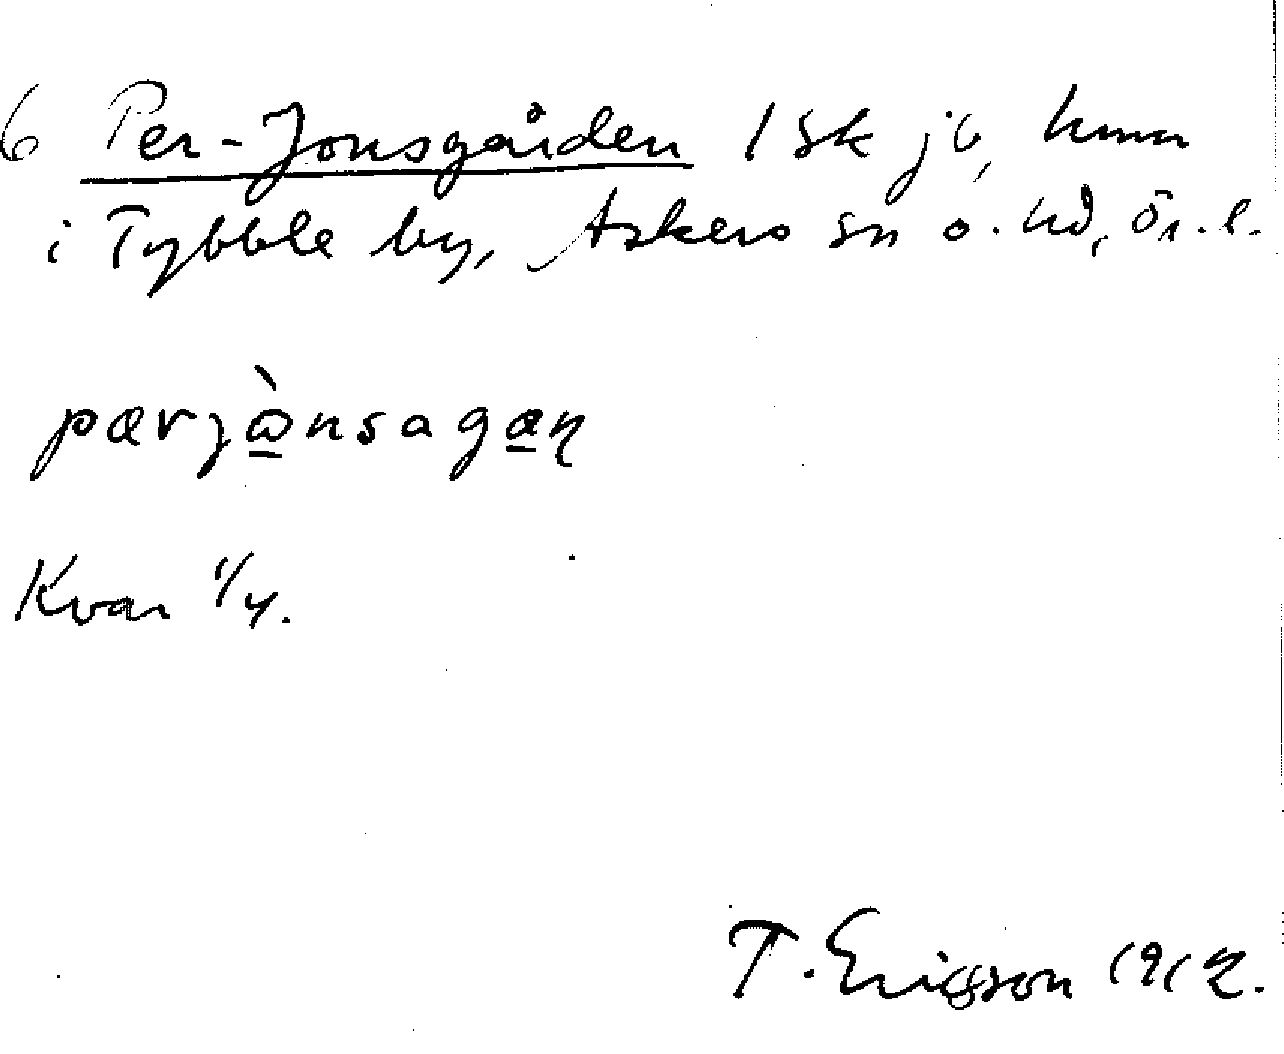 6 Per-Jonsgården 1 sk jb, hmn
i Tybble by, Askers sn o. hd, Ör. l.
pærjὼnsagaɳ
Kvar 1/4.
T. Ericsson 1912.